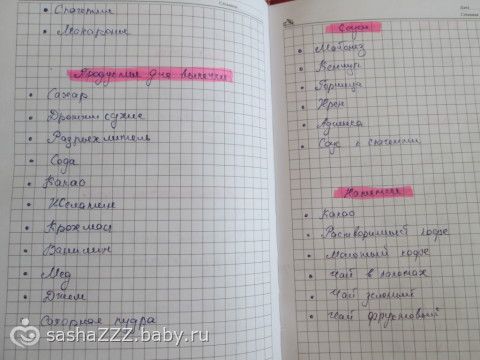 Спагетти
Макароны
Продукты для выпечки
Сахар
Дрожжи сухие
Разрыхлитель
Сода
Какао
Желатин
Крахмал
Ванилин
Мёд
Джем
Сахарная пудра
Соусы
Майонез
Кетчуп
Горчица
Хрен
Аджика
Соус к спагетти
Напитки
Какао
Растворимый кофе
Молотый кофе
Чай в пакетах
Чай зеленый
Чай фруктовый
sashaZZZ.baby.ru